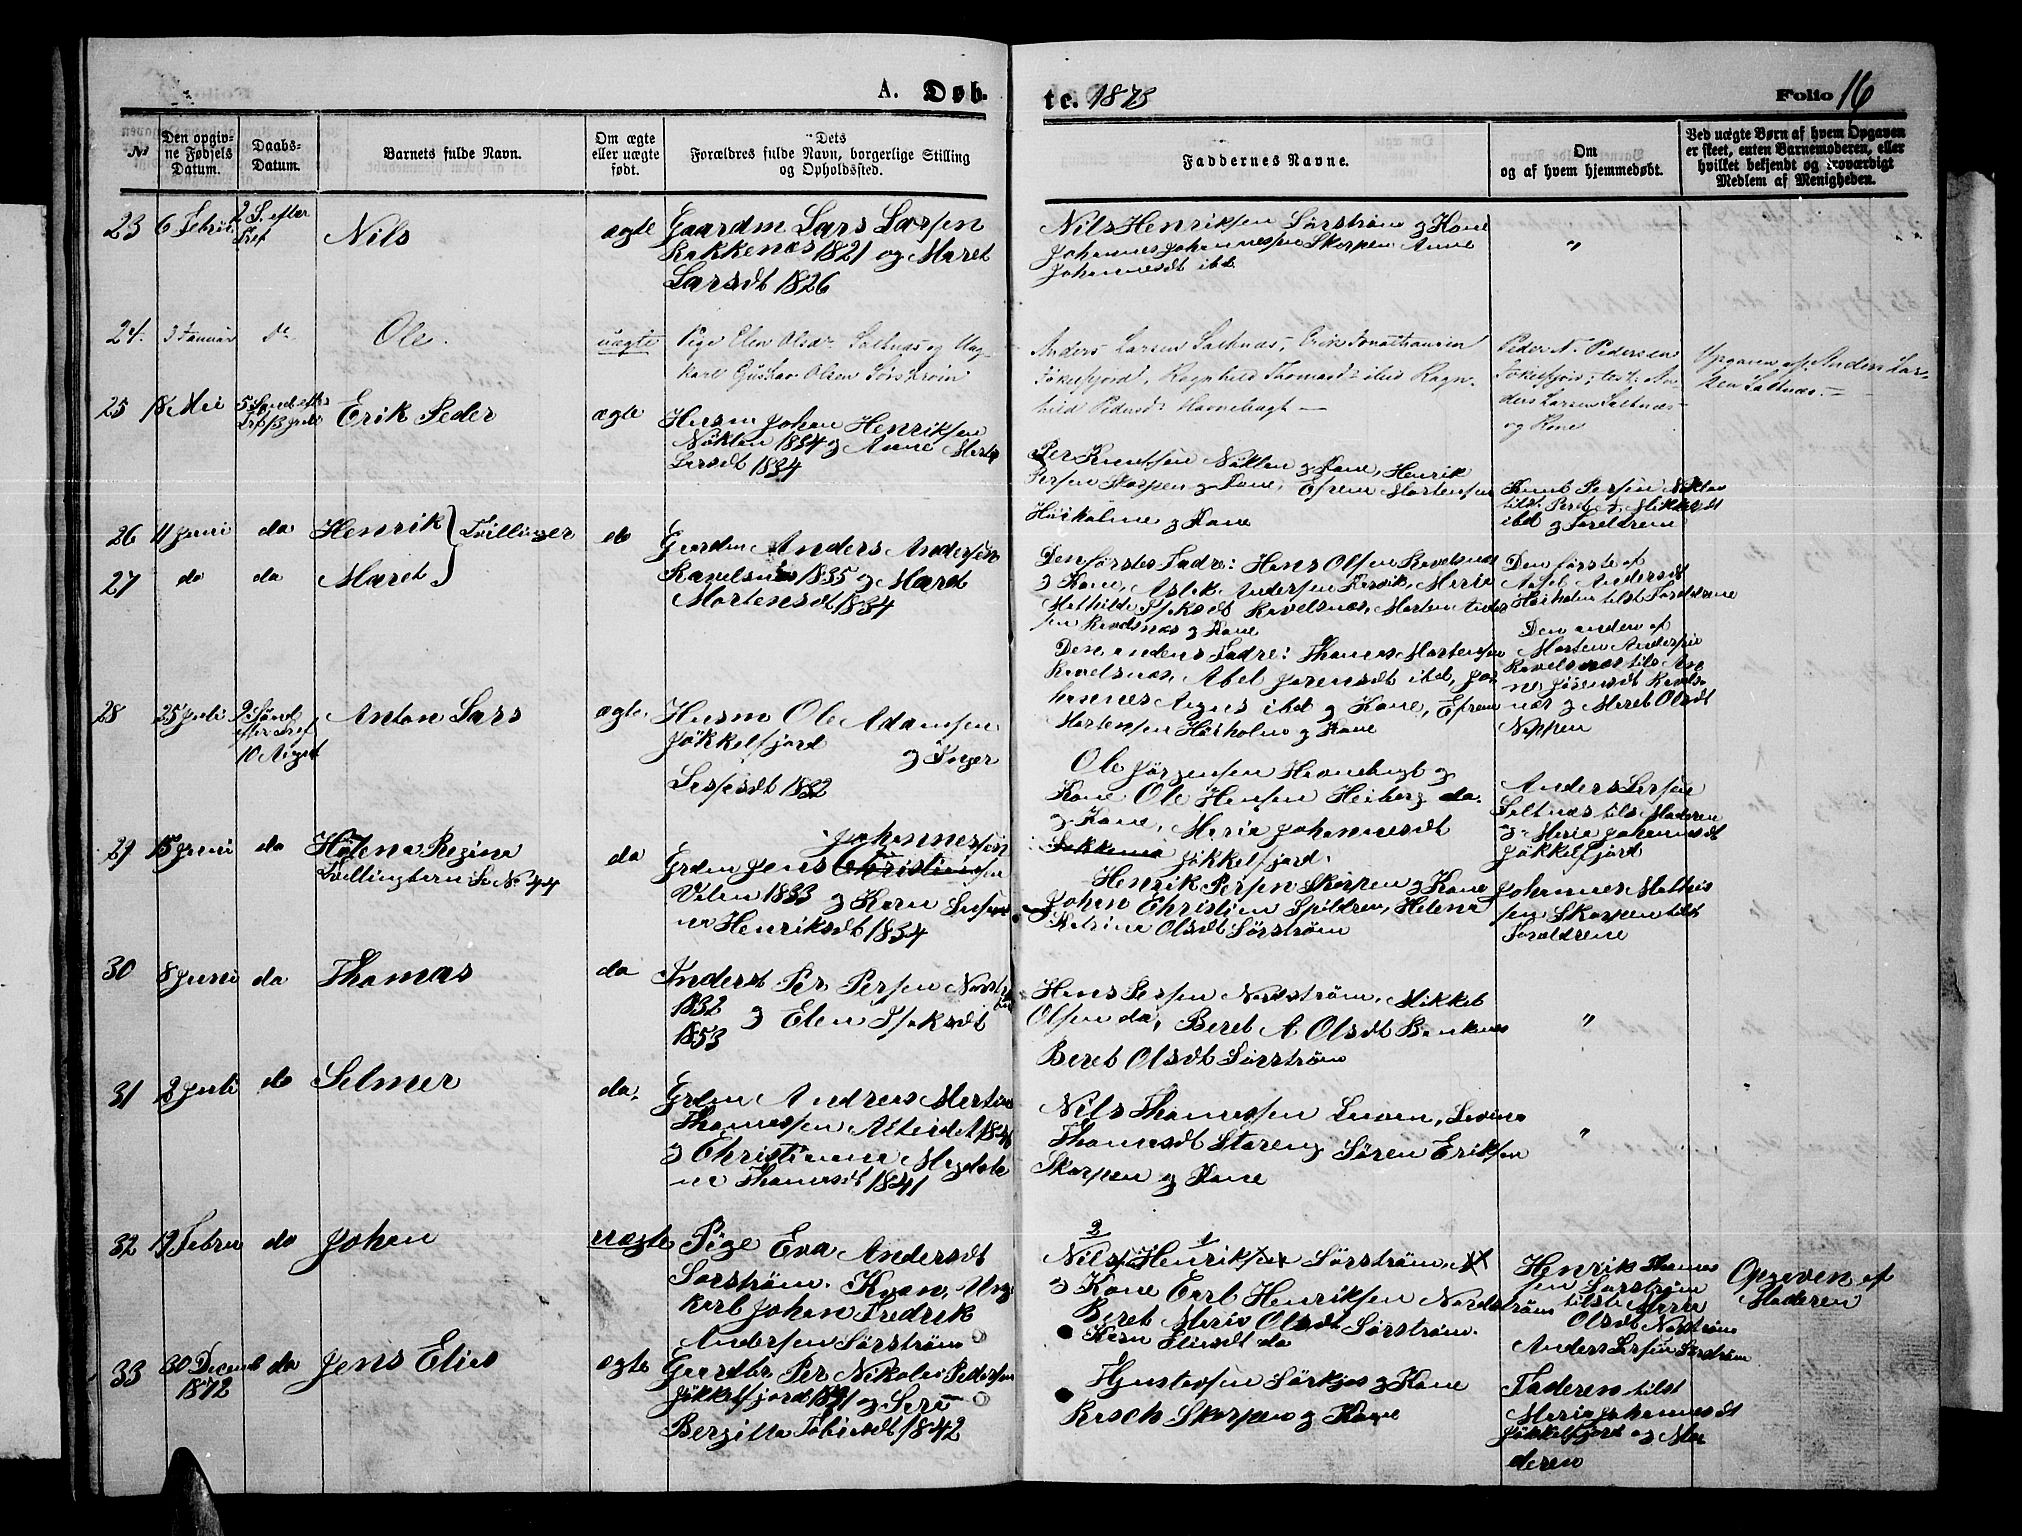 A. Døb-
te. 1873
Folio 16
No
Den opgiv-
ne Fødsels
Datum.
Daabs-
Datum.
Barnets fulde Navn.
Om ægte
eller uægte
født.
Dets
Forældres fulde Navn, borgerlige Stilling
og Opholdssted.
Faddernes Navne.
Om
og af hvem hjemmedøbt.
Ved uægte Børn af hvem Opgaven
er skeet, enten Barnemoderen, eller
hvilket bekjendt og troværdigt
Medlem af Menigheden.
23
6 Februar
2 S. efter
Tref
Nils
ægte
Gaardm Lars Larsen
Rakkenæs 1821 og Maret
Larsdt 1826
Nils Henriksen Sørstrøm og Kone
Johannes Johannessen Skorpen Anne
Johannesdt ibd
"
24.
3 Januar
do
Ole.
uægte
Pige Elen Olsdr Saltnæs og Ung-
karl Gustav Olsen Sørstrøm
Anders Larsen Saltnæs, Erik Jonathansen
Jøkelfjord, Ragnhild Thomasd ibid Ragn-
hild Pedersd Havnebugt —
Peder N. Pedersen
Jøkelfjord, test: An-
ders Larsen Saltnæs
og Kone
Opgiven af Anders Lar-
sen Saltnæs. —
25
18 Mei
Erik Peder
ægte
Husm Johan Henriksen
Nøklan 1834 og Anne Marta
Larsdt 1834
Per Knutsen Nøklan og Kone, Henrik
Persen Skorpen og Kone, Efrem Mortensen
Høiholme og Kone
Knut Persen Nøklan
tilst Peret Mikkelsdt
ibd og Foreldrene
26
11 Juni
do
Henrik } Tvillinger
do
27
do
do
Maret
Gaardm Anders Andersen
Ravelsnæs 1835 og Maret
Mortensdt 1834
Den førstes Fadre: Hans Olsen Ravelsnæs
og Kone, Aslak Andersen Maria
Mathilde Isaksdt Ravelsnæs, Morten Ander
sen Ravelsnæs og Kone
Den andens Fadre: Thomas Mortensen
Ravelsnæs, Abel Jørensdt ibd, Jo-
hannes Aronus ibd og Kone, Efrem
Mortensen Høiholm og Kone
Den første af
Abel Andersdt
Høiholm tilst Foreldrene
Den anden af
Morten Andersen
Ravelsnæs tilst An-
ne Jørensdt Ravels-
næs og Maret Olsdt
Noppen
28
25 Juli
9 Sønd
efter Tref
10 August
Anton Lars
ægte
Husm Ole Adamsen
Jøkkelfjord og Inger
1832
Ole Jørgensen Havnebugt og
Kone Ole Hansen Heiberg do
og Kone, Maria Johannesdt
Jøkkelfjord.
Anders Larsen
Saltnæs tilst Moderen
og Maria Johannesdt
Jøkkelfjord
29
15 Juni
do
Helena Regina
Tvillingbarn Se No 44
do
Johannessen
Grdm Jens Christiansen
1833 og Karn
Henriksdt 1834
Henrik Persen Skorpen og Kone
Johan Christian Spildren, Helena
Katrina Olsdt Sørstrøm
Johannes Mathis
sen Skorpen tilst
Foreldrene
30
8 Juni
do
Thomas
do
Inderst Per Persen Nordstrøm
1832
og Elen Isaksdt
1853
Hans Persen Nordstrøm, Mikkel
Olsen do, Beret A Olsdt
Beret Olsdt Sørstrøm
"
31
2 Juli
do
Selmer
do.
Grdm Andreas Martin
Thomassen Alteidet 1841
og Christianne Magdale
na Thomasdt 1841
Nils Thomassen
Thomasdt Storeng Søren Eriksen
Skorpen og Kone
"
32
19 Februar
do
Johan
uægte
Pige Eva Andersdt
Sørstrøm. Kvan, Ung-
karl Johan Fredrik
Andersen Sørstrøm
Nils Henriksen Sørstrøm
og Kone Carl Henriksen Nordstrøm
Beret Maria Olsdt Sørstrøm.
Karn do
Henrik Thomas
sen Sørstrøm
tilst: Maria
Olsdt Nordstrøm
Anders Larsen Sørstrøm
Opgiven af
Moderen
33
30 December
1872
do
Jens Elias
ægte
Per Nikolai Pedersen
Jøkkelfjord 1841 og
Bergitta Tobiasdt 1842
Hj Gustavsen Sørkjos og Kone
Resch Skorpen og Kone
Faderen tilst
Maria Johannesdt
Jøkkelfjord og Mo-
deren